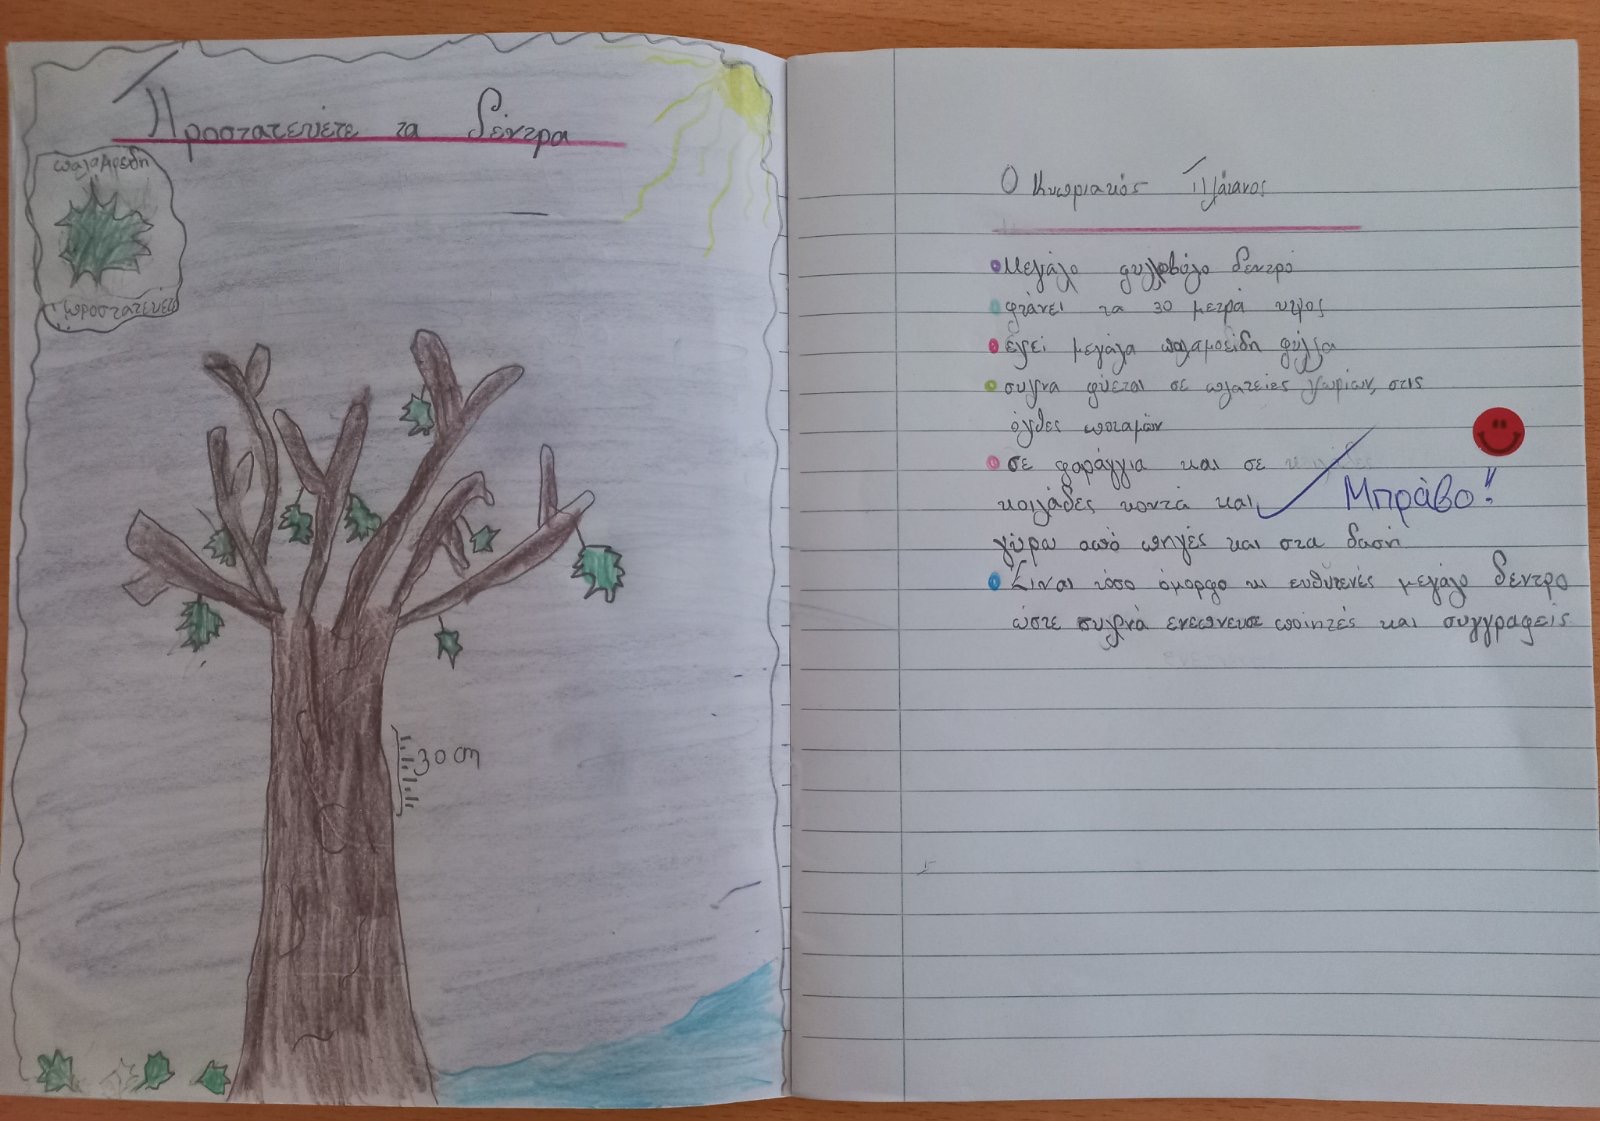 Προστατεύετε τα δέντρα
παλαμοειδή
προστατεύετε
30 cm
Ο Κυπριακός Πλάτανος
Μεγάλο φυλλοβόλο δεντρο
φτάνει τα 30 μετρα υψος
έχει μεγάλα παλαμοειδη φύλλα
συχνα φύεται σε πλατείες χωριών, στις
όχθες ποταμών
σε φαράγγια και σε
κοιλάδες κοντά και
Μπράβο!!
γύρω από πηγές και στα δαση
Είναι τόσο όμορφο κι ευθυτενές μεγάλο δεντρο
ώστε συχνά ενεπνευσε ποιητές και συγγραφείς